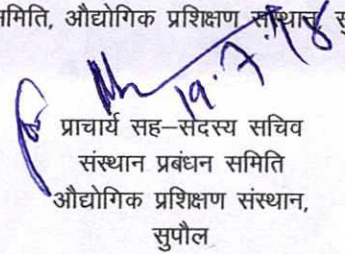 मिति, औद्योगिक प्रशिक्षण संस्थान, सु
19.7.18
प्राचार्य सह–सदस्य सचिव
संस्थान प्रबंधन समिति
औद्योगिक प्रशिक्षण संस्थान,
सुपौल